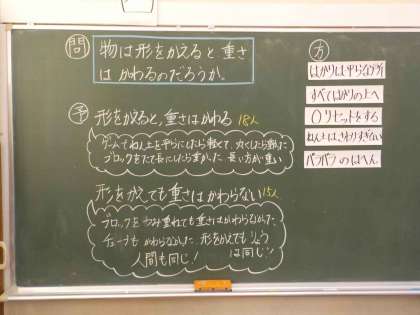 問 物は形をかえると、重さ
はかわるのだろうか。
予 形をかえると、重さはかわる 18人
ゲームでねん土を平らにしたら軽くて、丸くしたら重くした
ブロックをたて長にしたら重かった 長い方が重い
形をかえても重さはかわらない 15人
ブロックをつみ重ねても重さはかわらなかった
も かわらなかった 形をかえても
人間も同じ! は同じ
方
はかりは平らな
すべてはかりの上へ
0リセットをする
ねん土はさわりすぎない
バラバラの